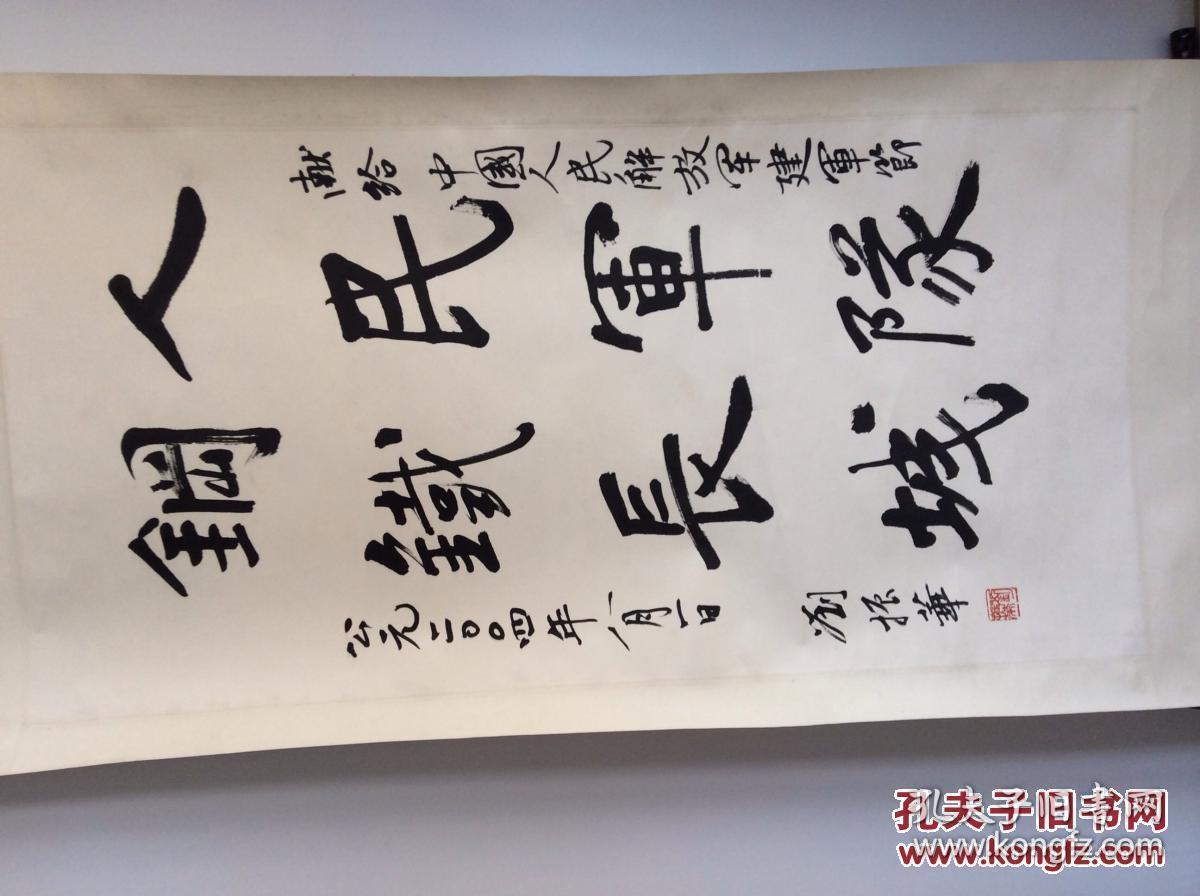 献给中國人民解放军建軍節
人民軍隊
鋼鐵長城
公元二00四年八月一日
劉振華
孔夫子旧书网
www.kongfz.com